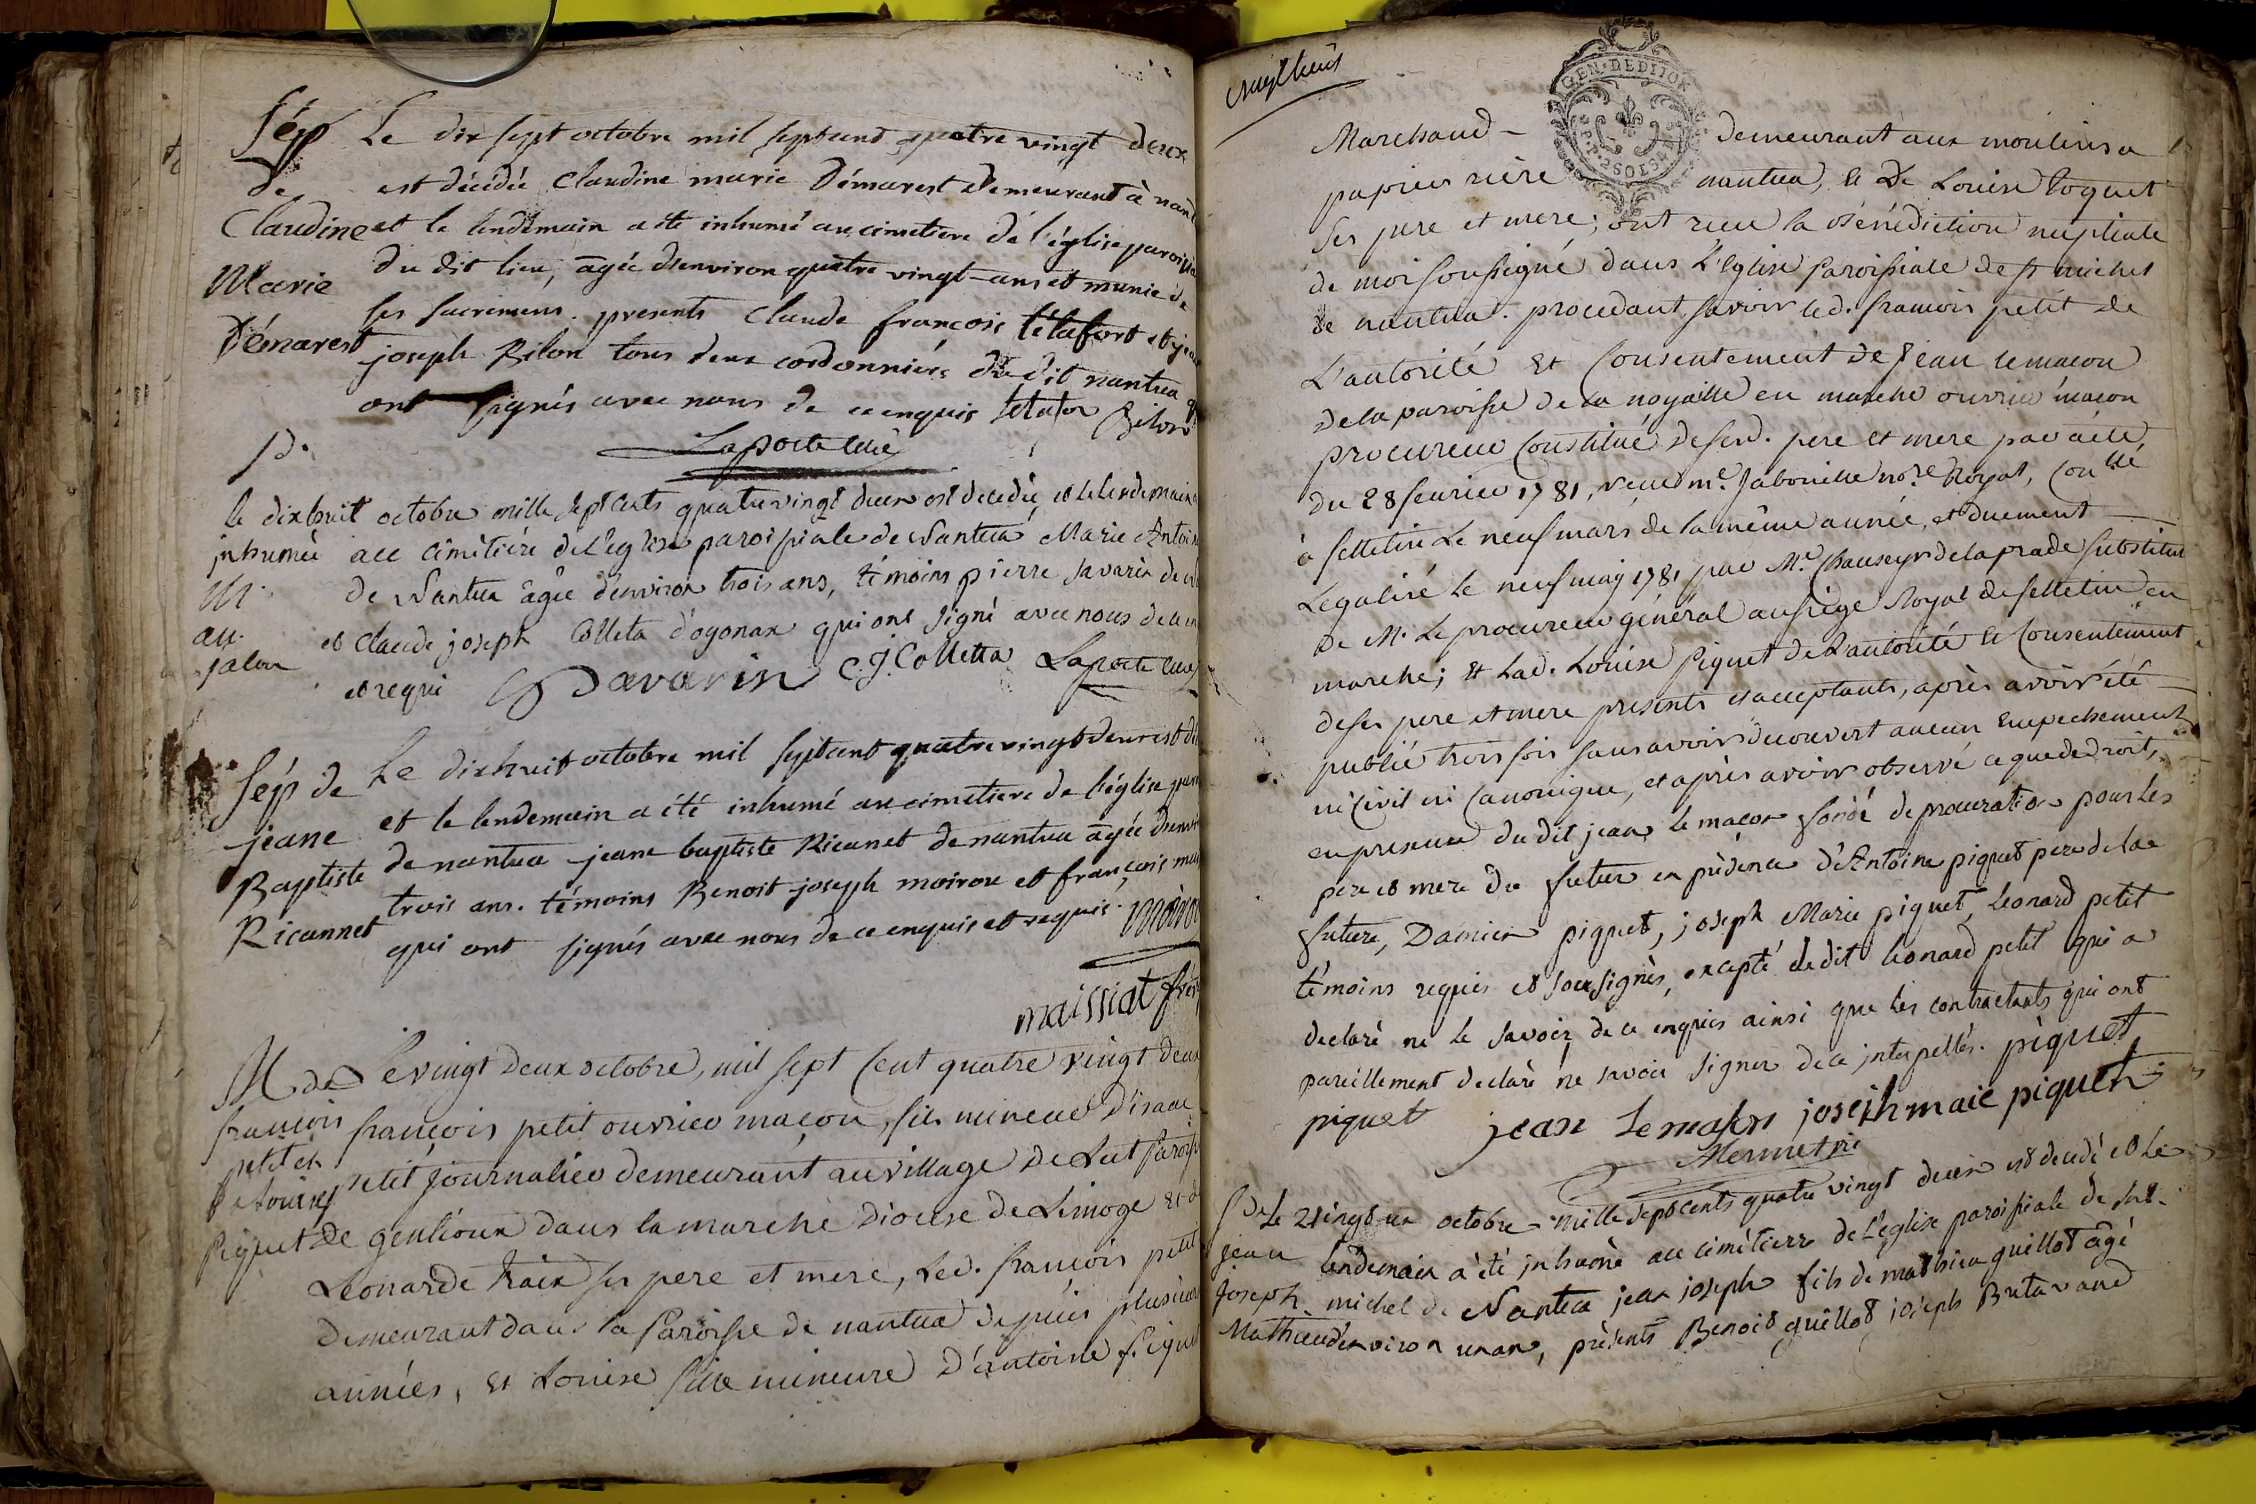 Sép Le dix sept octobre mil septcent quatre vingt deux
de est décédée Claudine marie Démarest demeurant à nant
Claudine et le lendemain a été inhumé au cimetiere dé l'église paroissia
du dit lieu, agée d'environ quatre vingt-ans et munie de
Marie ses sacremens. presents Claude françois tétafort et jean
Démarest joseph Bilon tous deux cordonniérs du dit nantua q
ont signés avec nous de ce enquis
Laporte curé
S d.
le dixhuit octobre mille sept cents quatre vingt deux est decedée, et le lendemain
inhumée au cimétiére de L'eglise paroissiale de Nantua Marie Antoin
M. de Nantua agée d'environ trois ans, témoins pierre savarin de
an. et Claude joseph Colleta d'ogonax qui ont signé avec nous de ce en
jalon et requi Savarin C. J. Colletta Laporte curé
Sép de Le dixhuit octobre mil septcent quatre vingt deux est dé
jeane et le lendemain a été inhumé au cimetiere de l'église par
Baptiste de nantua jeane baptiste Ricanet de nantua agée d'envi
Ricannet trois ans. témoins Benoit joseph moiroux et françois
qui ont signés avec nous de ce enquis et requis.
maissiat
M. de Le vingt deux octobre, mil sept Cent quatre vingt deux
francois françois petit ouvrier maçon, fils mineur d'isaac
petit et petit journalier demeurant au village de paroisse
De Louise
piquet de gentioux dans la marche diocese de Limoge et d
Leonarde ses pere et mere, led. françois petit
Demeurant dans la Paroisse de nantua depuis plusieur
années, et Louise fille mineure d'antoine piquet
vingt huit
GEN. DEDIJON
Marchand demeurant aux moulins a
papier riere nantua, et de Louise
Ses pere et mere; ont recu la bénédiction nuptiale
de moi soussigné dans L'eglise Paroissiale de st michel
de nantua. procedant, savoir led. francois petit de
L'autorité et Consentement de Jean lemacon
de la paroisse de la noyaille en marche ouvrier maçon
procureur Constitué de sesd. pere et mere par acte,
du 28 fevrier 1781, recu me. Jabouille nore. Royal, Conllé
à felletin Le neuf mars de la même année, et duement
Legalisé le neuf may 1781 par Mr. de la prade substitut
de Mr. Le procureur général au siège Royal de felletin en
marche; et lad. Louise piquet de L'autorité et Consentement
de ses pere et mere presents et acceptants, après avoir été
publié trois fois sans avoir découvert aucun Empechement
ni Civil ni Canonique, et après avoir observé ce que de droit,
en presence du dit jean le maçon fondé de procuration pour les
pere et mere du futur en présence d'Antoine piquet pere de la
future, Damien piquet, joseph Marie piquet, Léonard petit
témoins requis et soussignés, excepté le dit leonard petit qui a
declaré ne le savoir, de ce enquis ainsi que les contractants qui ont
pareillement declaré ne savoir signer de ce interpellés. piquet
piquet jean Lemason joseph maie piquet
Mermet vic
S de Le vingt un octobre mille sept cents quatre vingt deux est decedé et le
jean lendemain a été inhumé au cimétierre de L'eglise paroissiale de St
Joseph. michel de Nantua jean joseph fils de mathieu guillot agé
Mathieu d'environ un an, présents Benoit guillot joseph Butavand